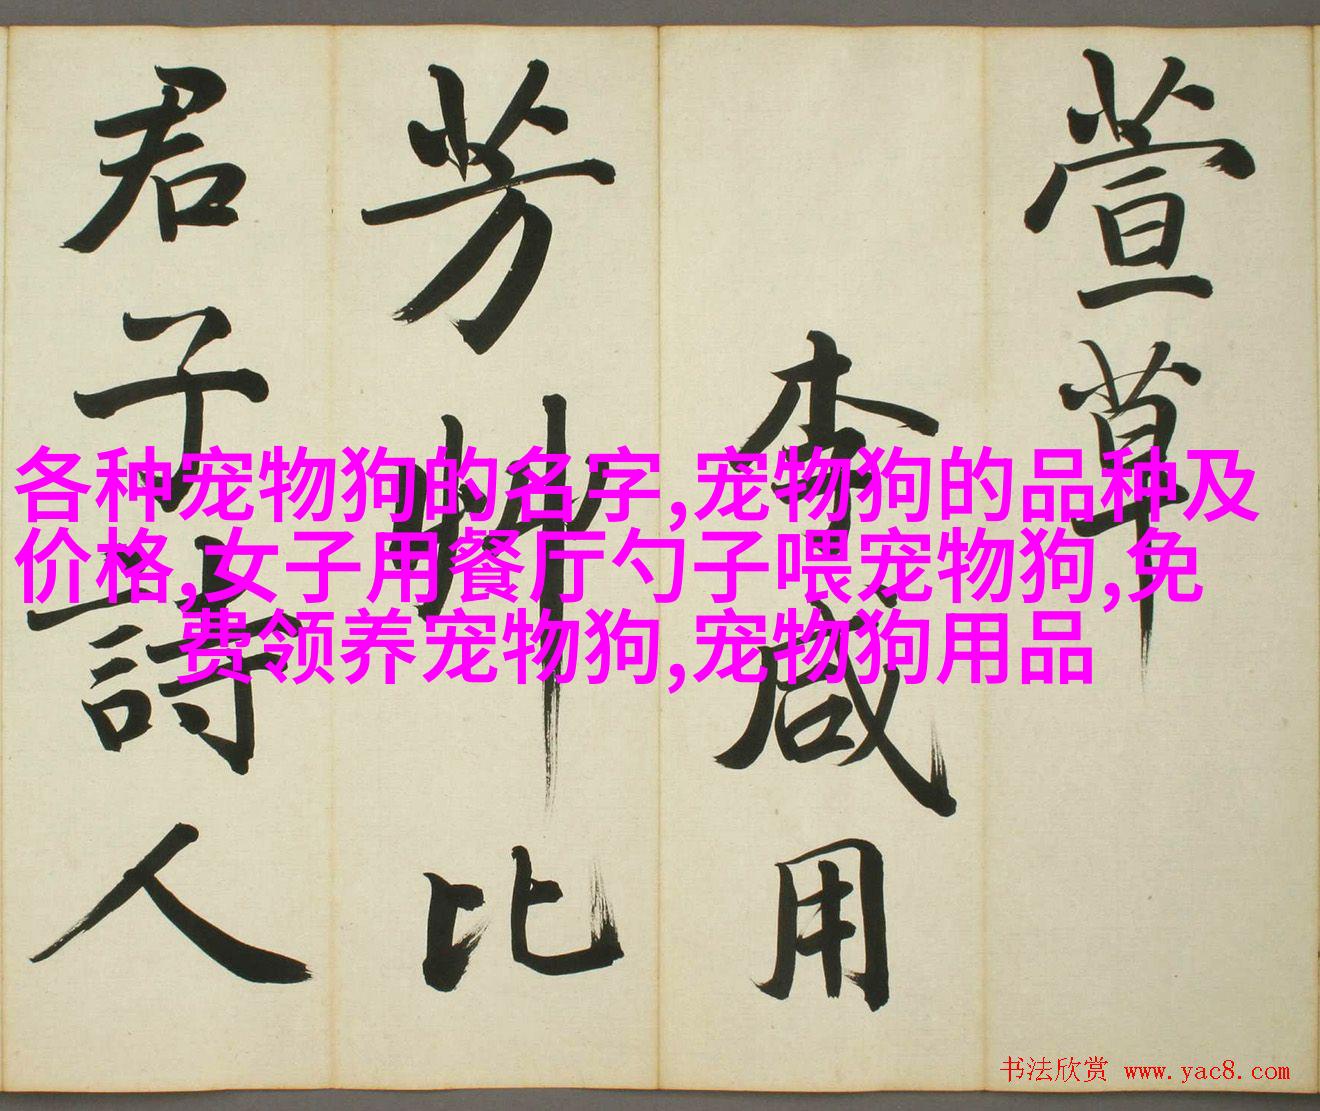 萱草
李咸用
芳艸比
君子詩人
各种宠物狗的名字,宠物狗的品种及
价格,女子用餐厅勺子喂宠物狗,免
费领养宠物狗,宠物狗用品
书法欣赏 www.yac8.com